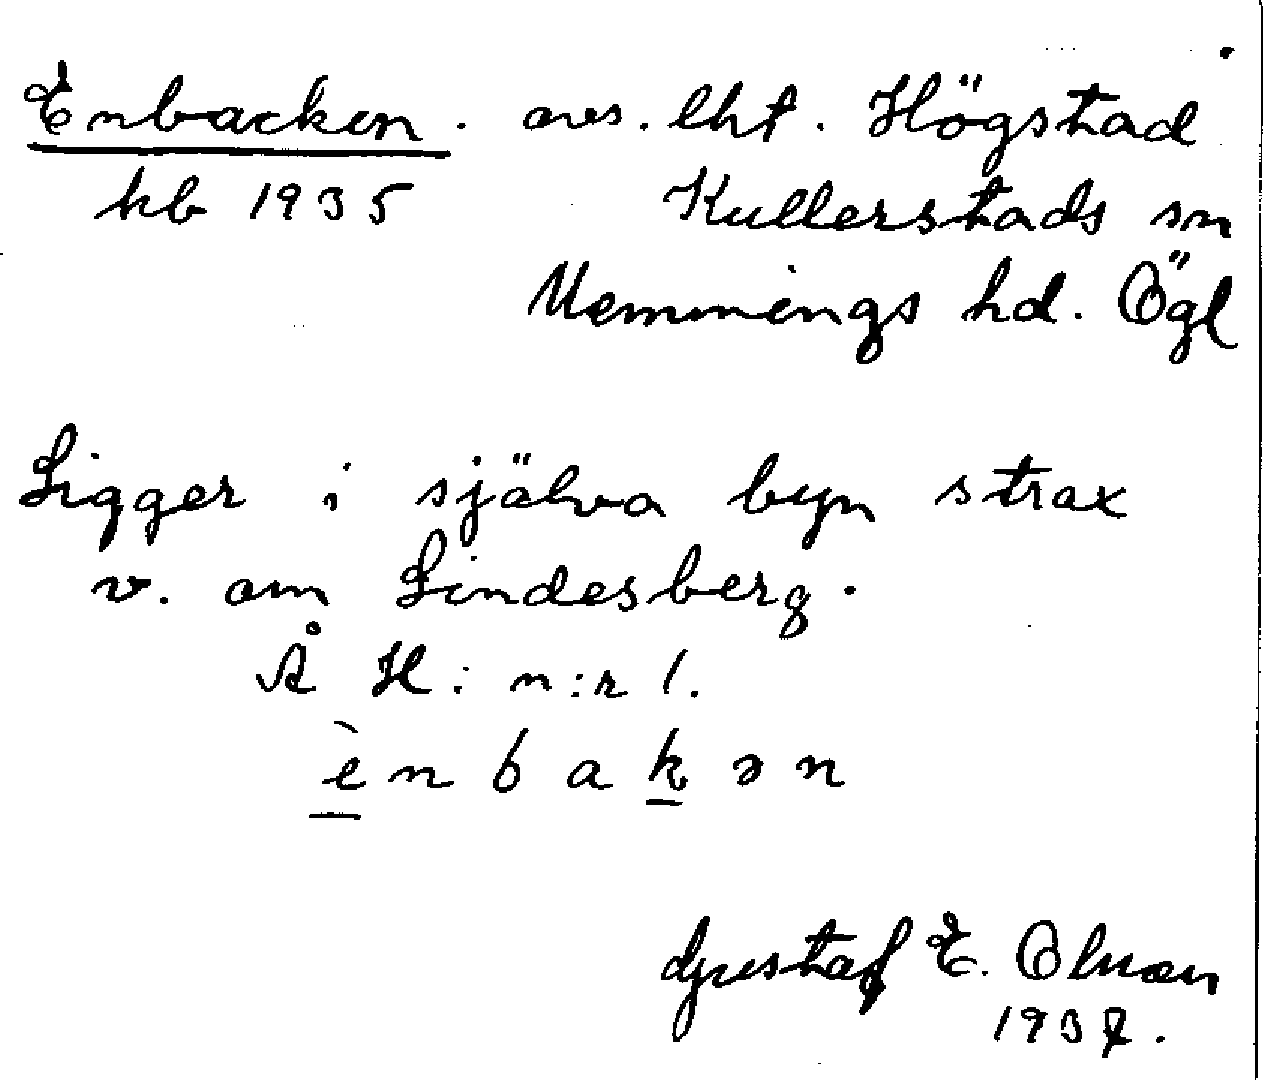 Enbacken. avs. lht. Högstad
kb 1935 Kullerstads sn
Memmings hd. Ögl
Ligger i själva byn strax
v. om Lindesberg.
Å H: n:r 1.
ènbakən
Gustaf E. Olman
1937.